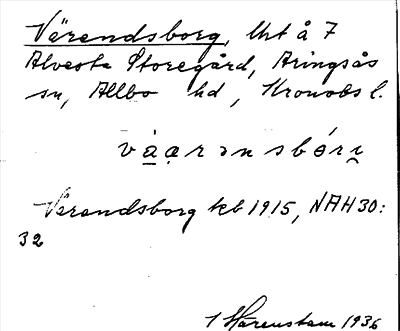 Värendsborg, Urt å 7
Alvesta Storegård, Aringsås
sn, Allbo hd, Kronobs l.
våạrənsbórı̣
Värendsborg kb 1915, NAH 30:
32
I Härenstam 1936